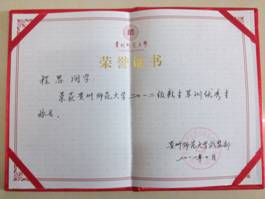 贵州师范大学
荣誉证书
程思同学
荣获贵州师范大学二〇一二级新生军训优秀学
称号。
贵州师范大学武装部